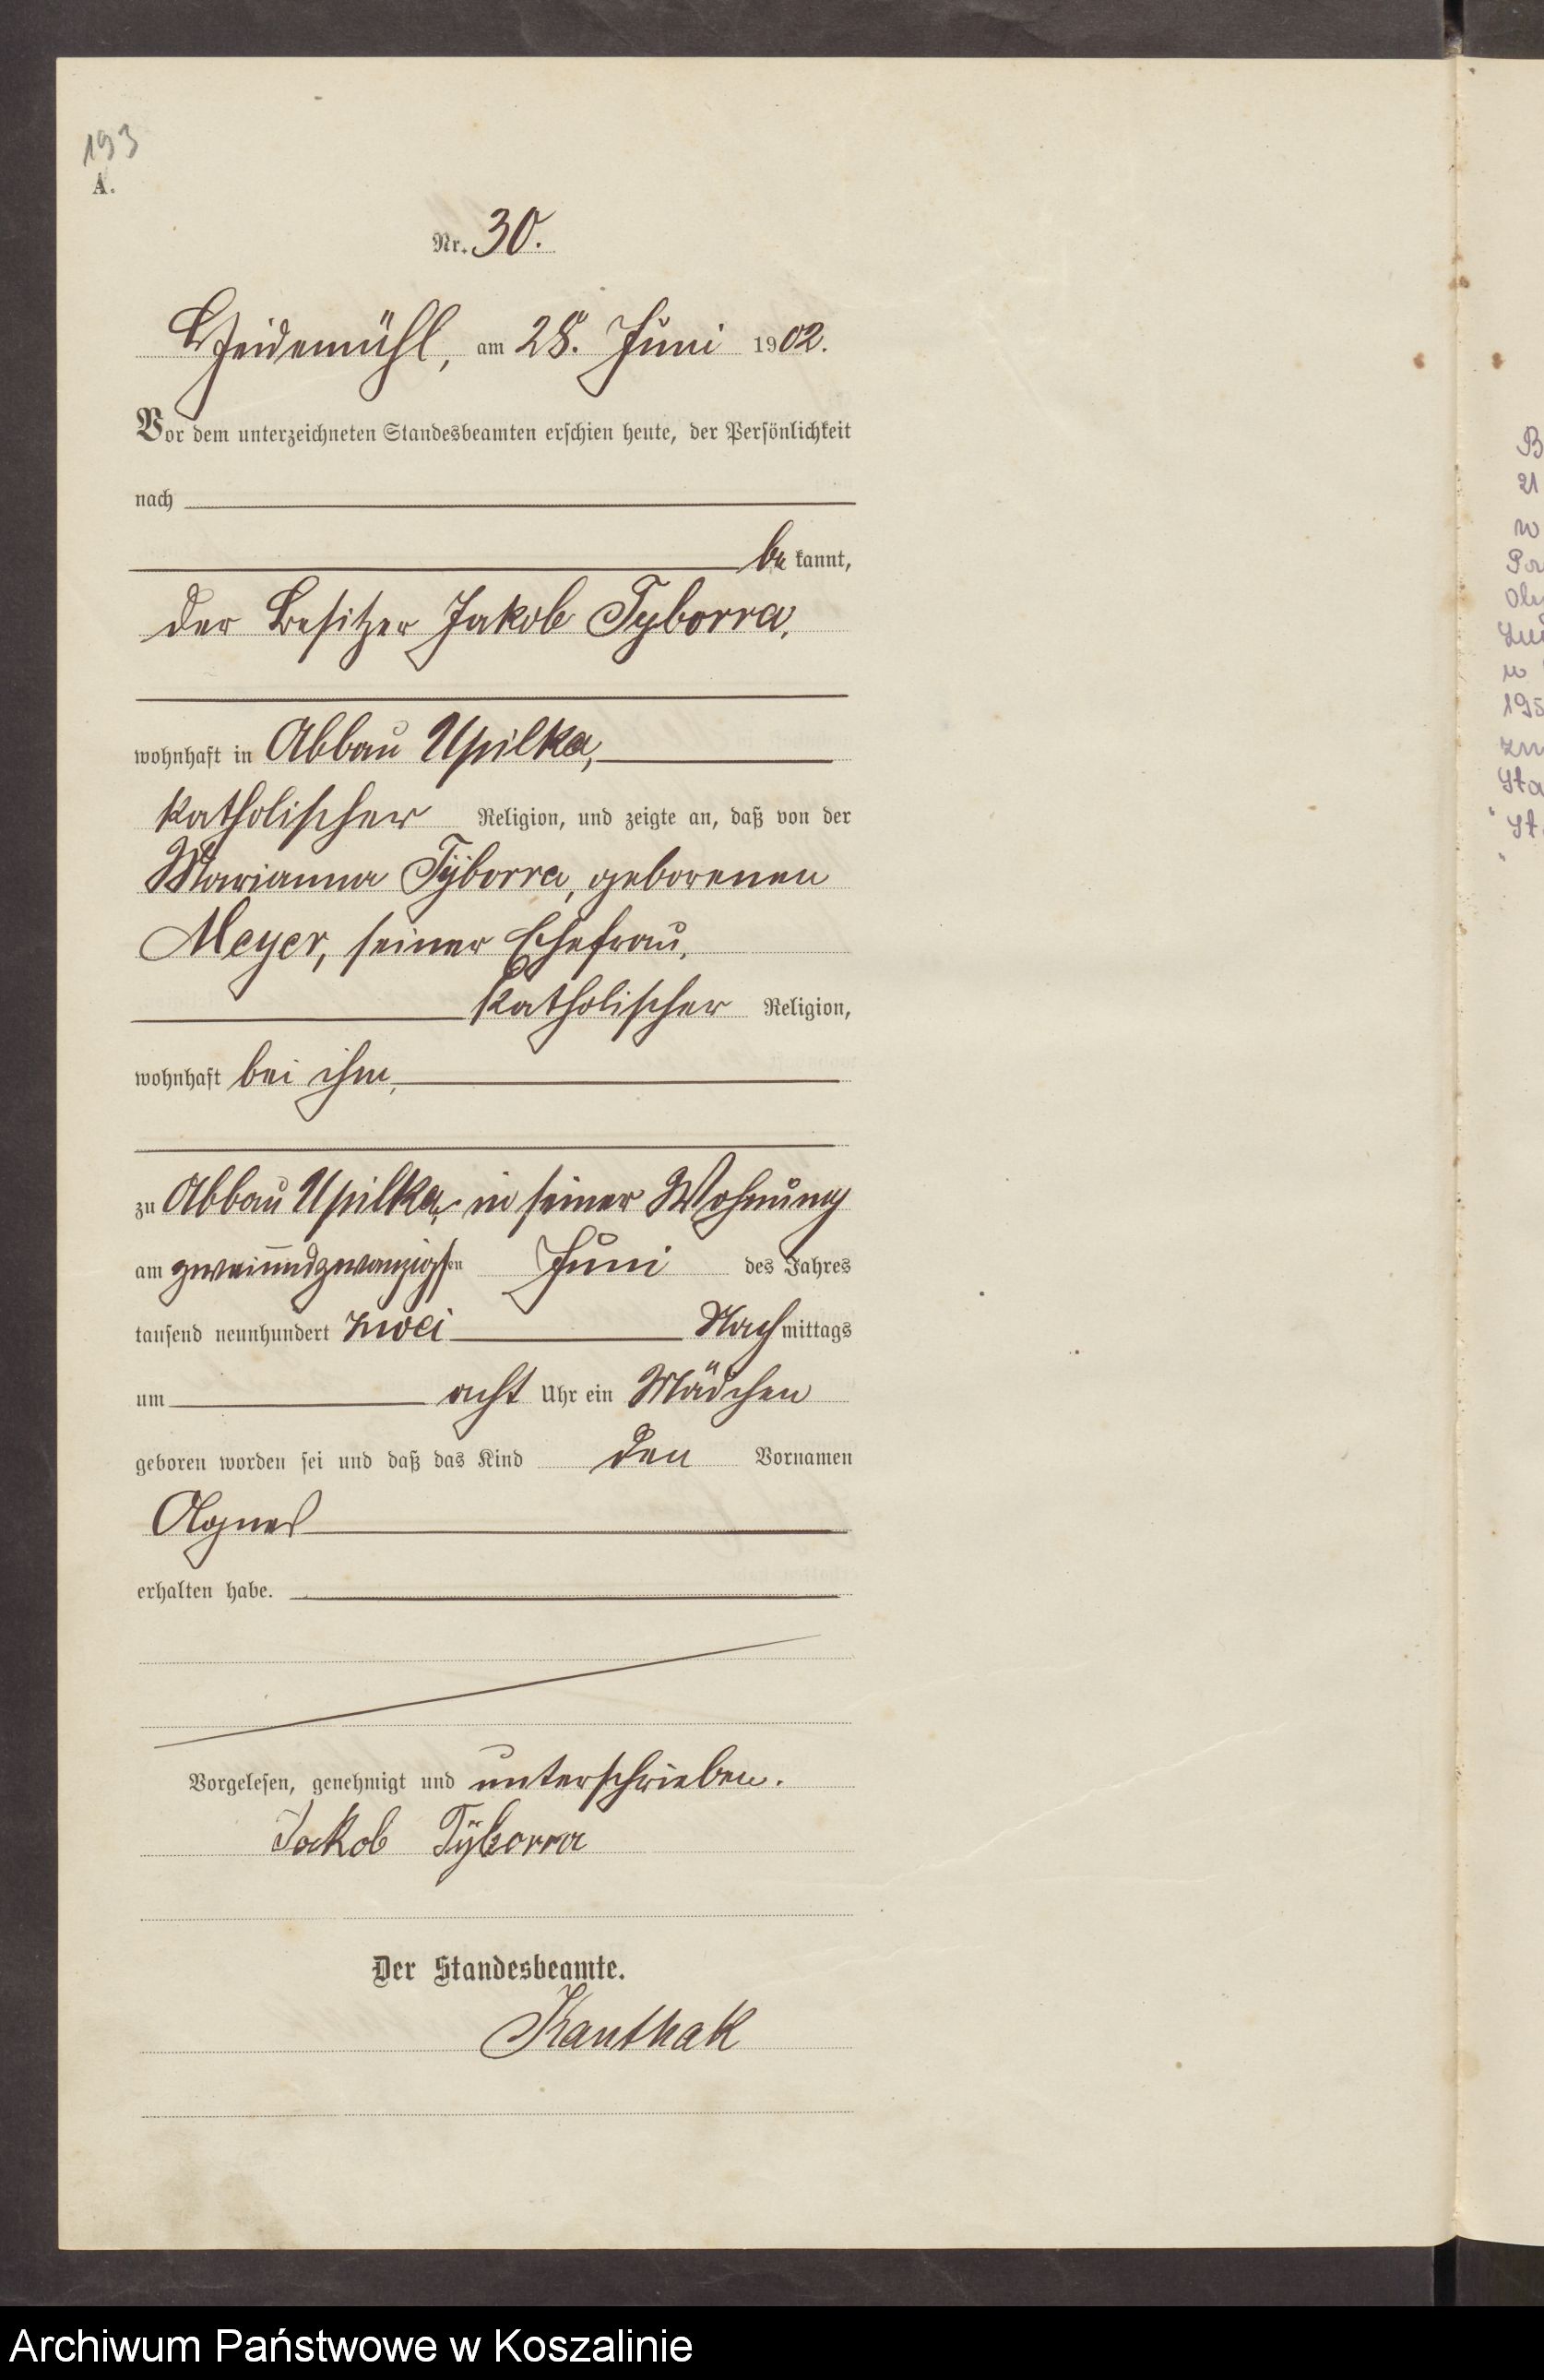 193
A.
Nr. 30.
Heidemühl, am 28. Juni 1902.
Vor dem unterzeichneten Standesbeamten erschien heute, der Persönlichkeit
nach
be kannt,
der Besitzer Jakob Tyborra,
wohnhaft in Abbau Upilka,
katholischer Religion, und zeigte an, daß von der
Marianna Tÿborra, geborenen
Meyer, seiner Ehefrau,
katholischer Religion,
wohnhaft bei ihm,
zu Abbau Upilka, in seiner Wohnung
am zweiundzwanzigsten Juni des Jahres
tausend neunhundert zwei Nachmittags
um acht Uhr ein Mädchen
geboren worden sei und daß das Kind den Vornamen
Agnes
erhalten habe.
Vorgelesen, genehmigt und unterschrieben.
Jakob Tÿborra
Der Standesbeamte.
Kanthak
B
21
w
w
195
Sta
St.
Archiwum Państwowe w Koszalinie